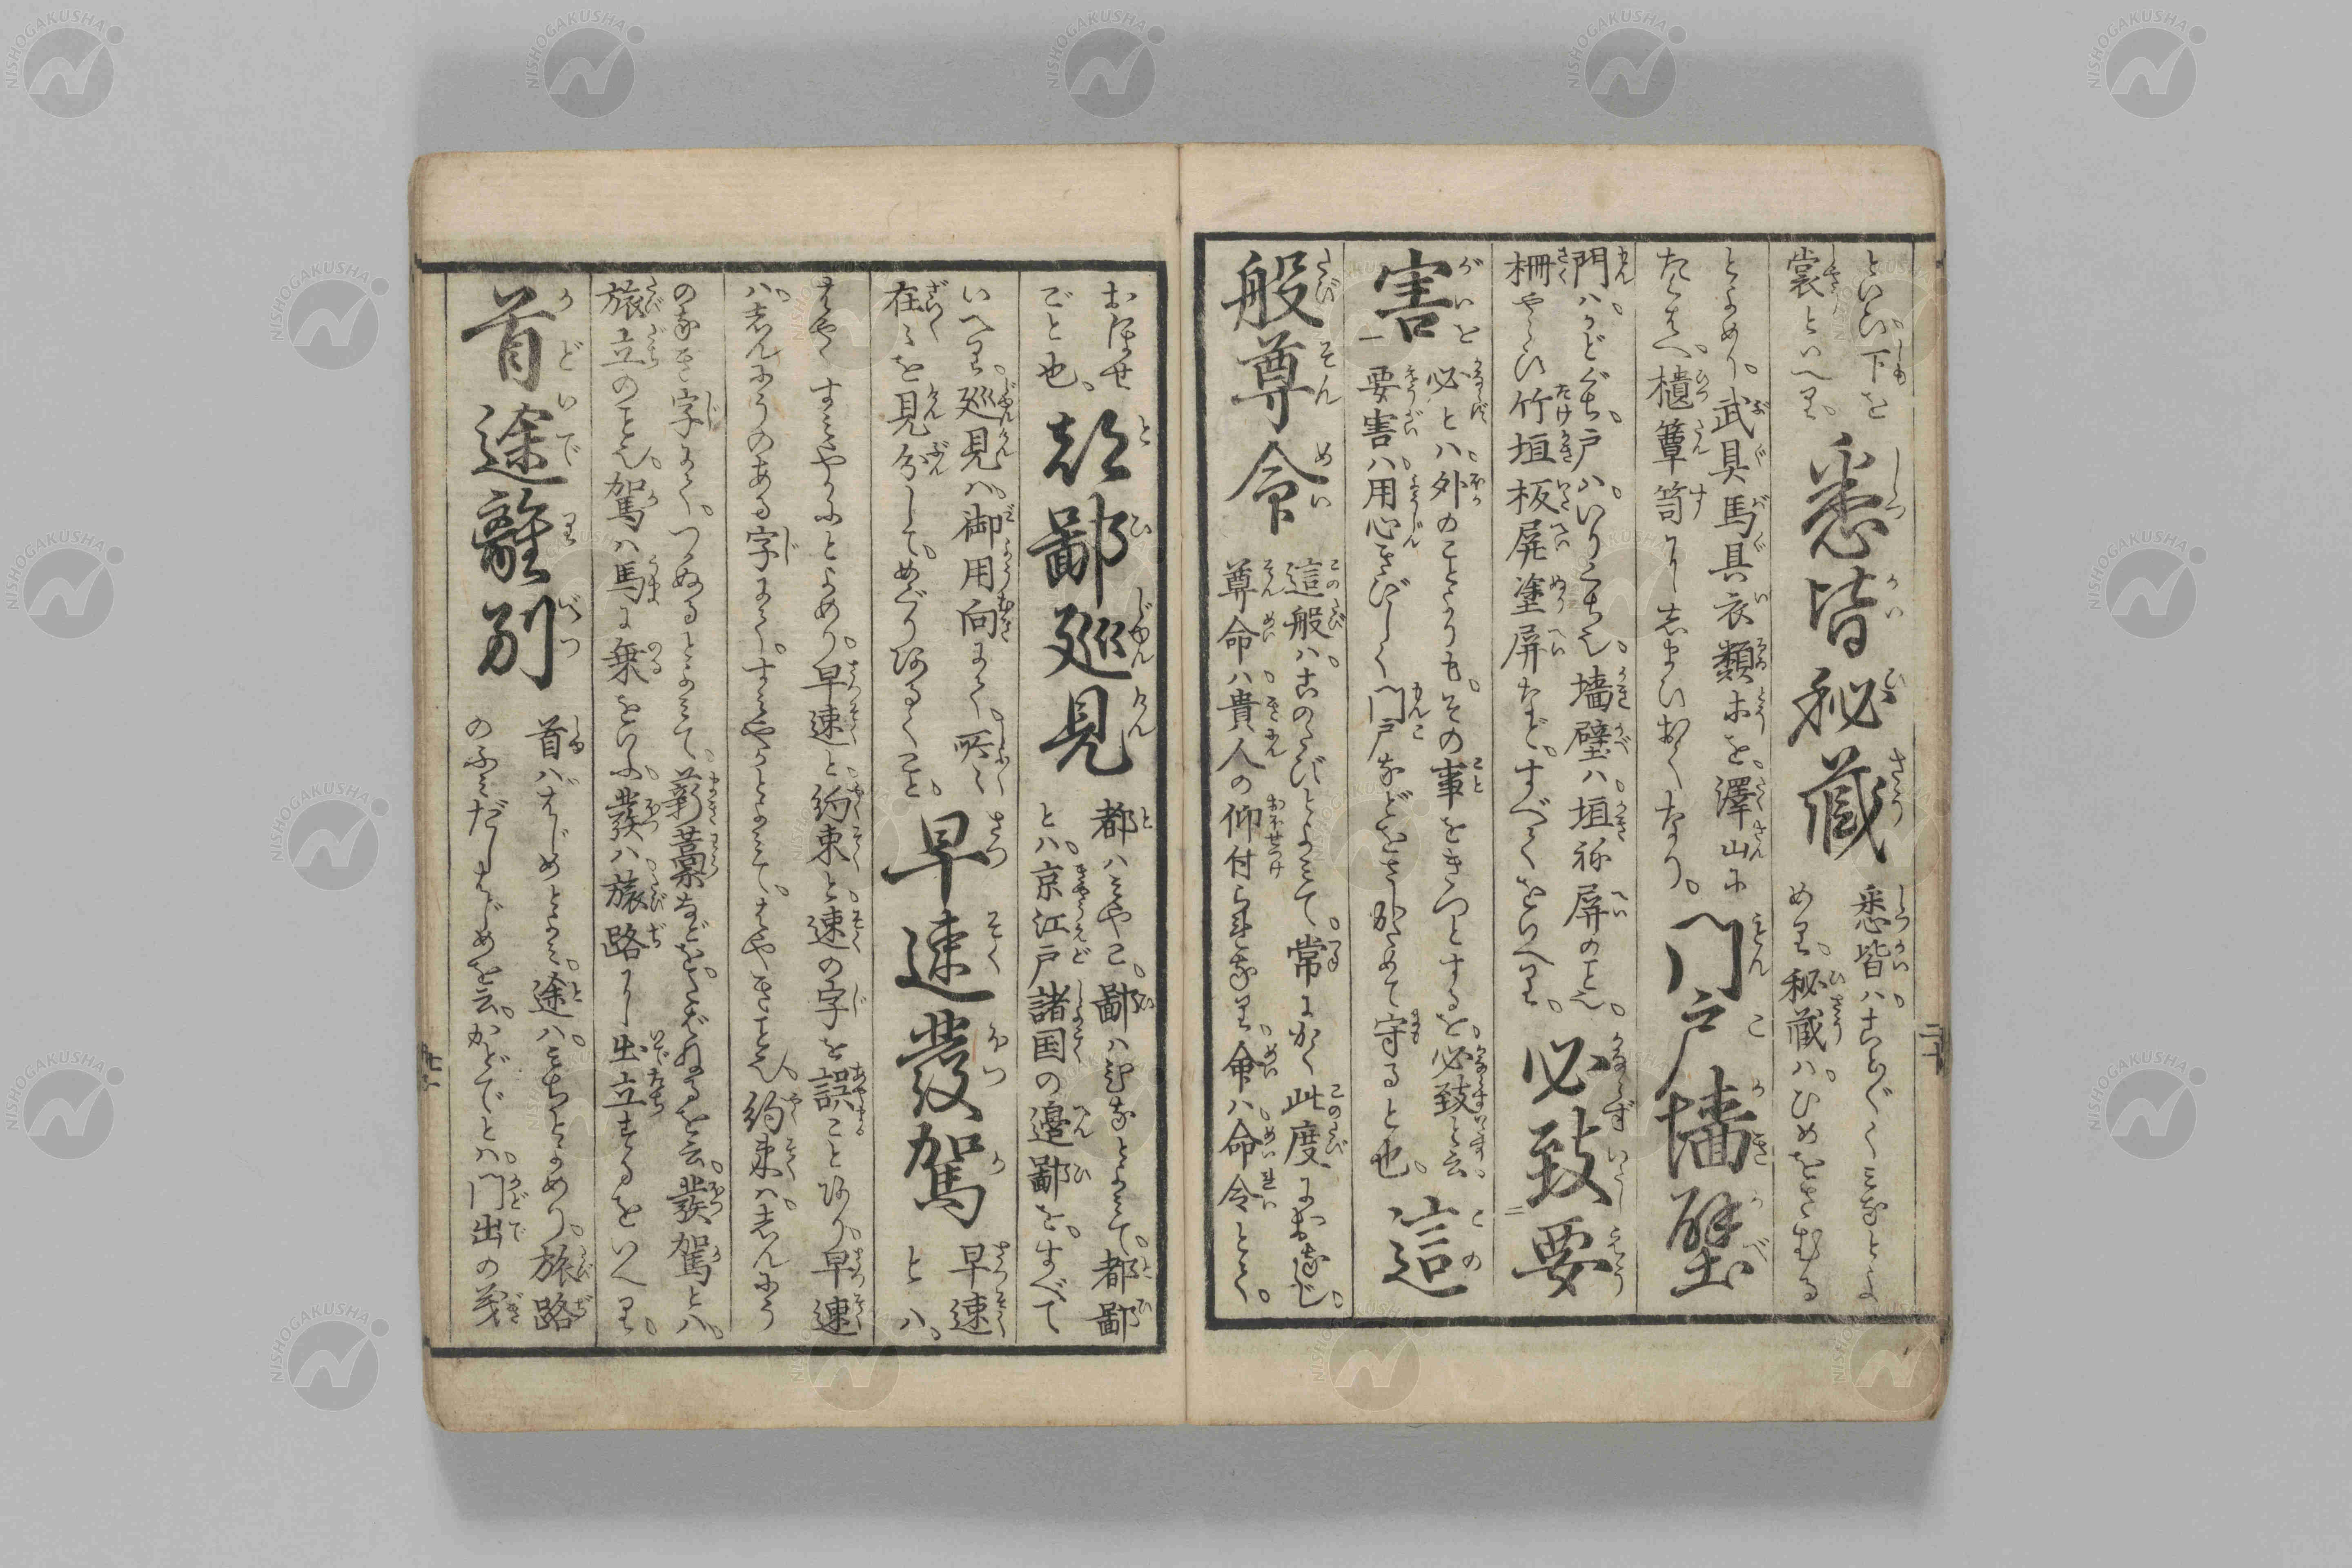 といひ。下を
裳といへり。
悉皆秘蔵
悉皆ハ。こと〲くみなとよ
めり。秘蔵ハ。ひめをさむる
とよめり。武具馬具衣類ホを。澤山に
たくはへ。櫃簞笥に しまひおくなり。
門戸墻壁
門ハ。かどぐち。戸ハ。いりくち也。墻壁ハ垣祢屏の事也。
柵やらひ竹垣板屏塗屏など。すべてをいへり。
必致要
害
必とハ。外のことよりも。その事をきつとするを。必致と云。
要害ハ。用心きびしく門戸などをさしかためて守ると也。
這
般尊命
這般ハ。このたびとよみて。常にかく此度におなじ。
尊命ハ。貴人の仰付られなり。命ハ。命令とて。
おほせ
ごと也。
都鄙廵見
都ハみやこ。鄙ハひなとよみて。都鄙
とハ。京江戸諸国の邊鄙を。すべて
いへり。廵見ハ。御用向にて。所〻
在〻を見分して。めぐりあるくこと。
早速發駕
早速
とハ。
はやく すミやかにとよめり。早速と。約束と。速の字を誤ことあり。早速
ハ。しんにうのある字にて。すミやかとよミて。はやき事也。約束ハ。しんにう
のなき字にて。つかぬるとよミて。薪藁などを。たばねるを云。發駕とハ。
旅立の事也。駕ハ馬に乗をいふ。發ハ。旅路に出立するをいへり。
首途離別
首ハはじめとよミ。途ハ。みちとよめり。旅路
のふミだしはじめを云。かどでとハ。門出の義